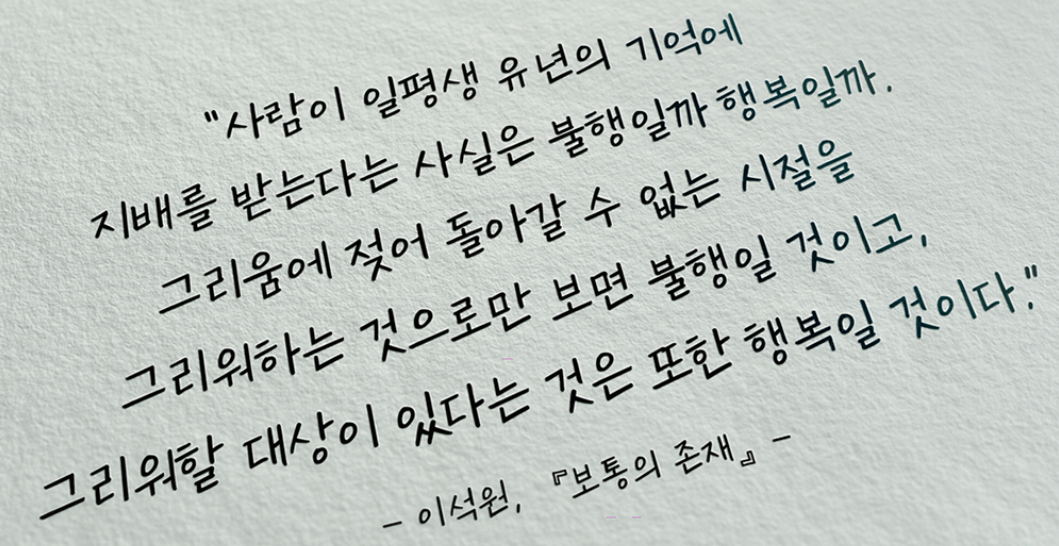 "사람이 일평생 유년의 기억에
지배를 받는다는 사실은 불행일까 행복일까.
그리움에 젖어 돌아갈 수 없는 시절을
그리워하는 것으로만 보면 불행일 것이고,
그리워할 대상이 있다는 것은 또한 행복일 것이다."
- 이석원, 『보통의 존재』 -